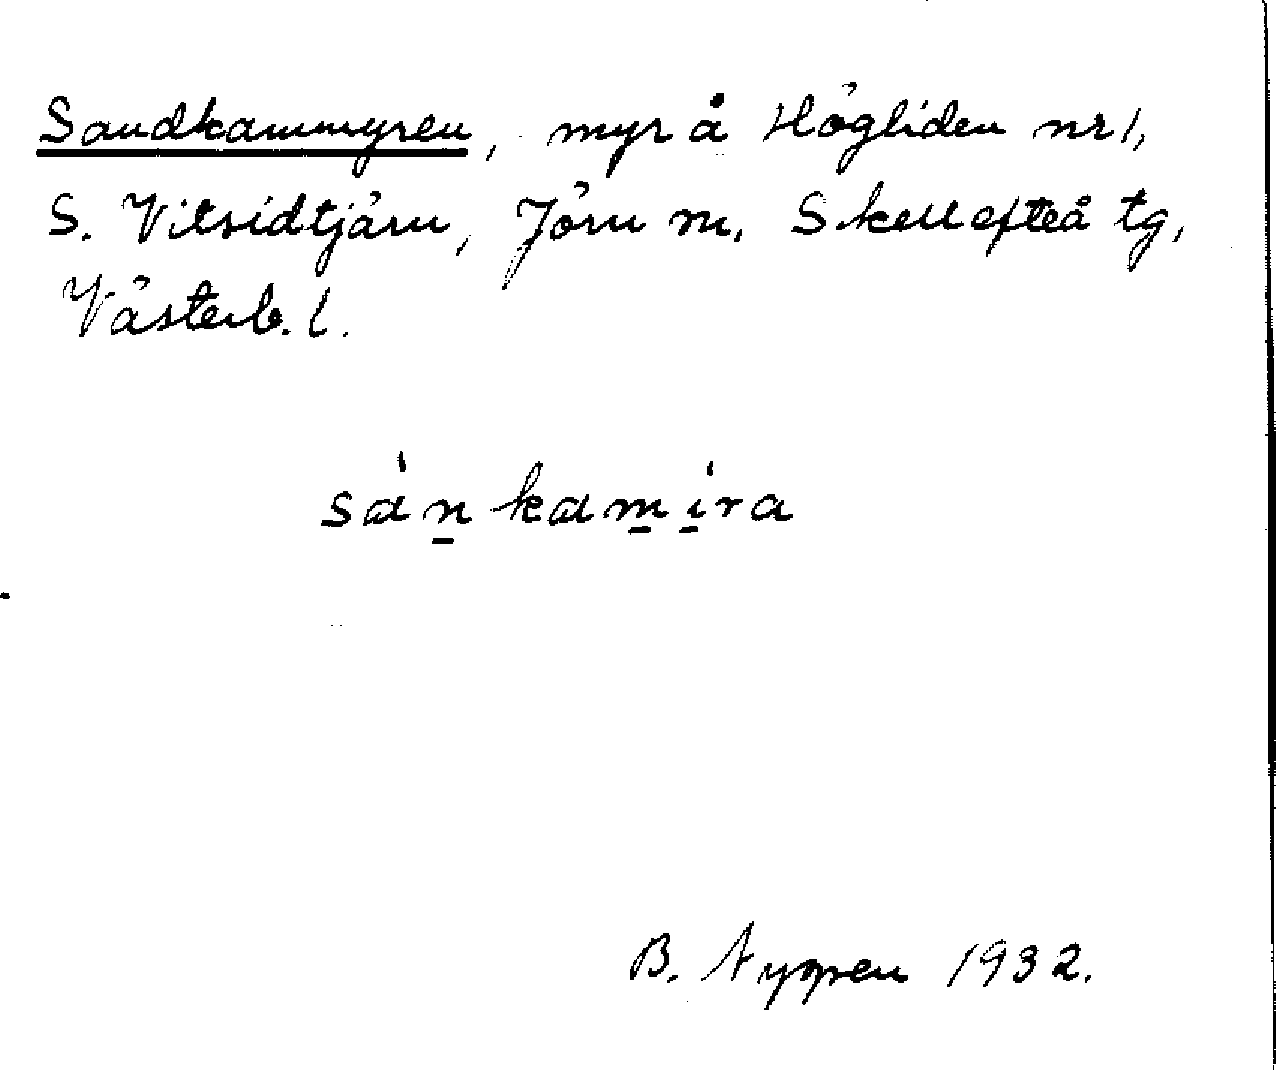 Sandkammyren, myr å Högliden nr 1,
S. Vitsidtjärn, Jörn sn, Skellefteå tg,
Västerb. l.
sànkamíra
B. Nyqren 1932.